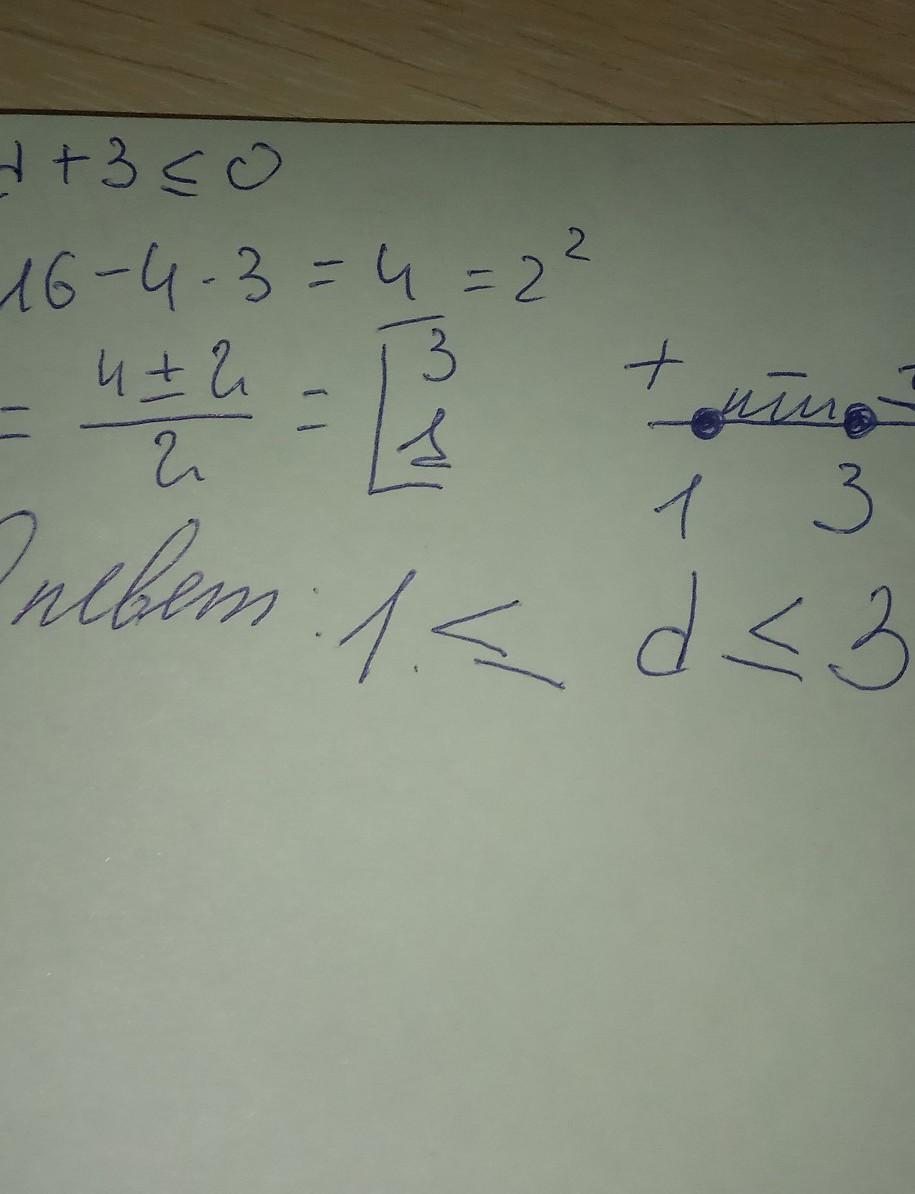 d + 3 ≤ 0
16 - 4 · 3 = 4 = 2²
= 4 ± 2 / 2 = [ 3 1
+ - +
1 3
Ответ: 1 ≤ d ≤ 3